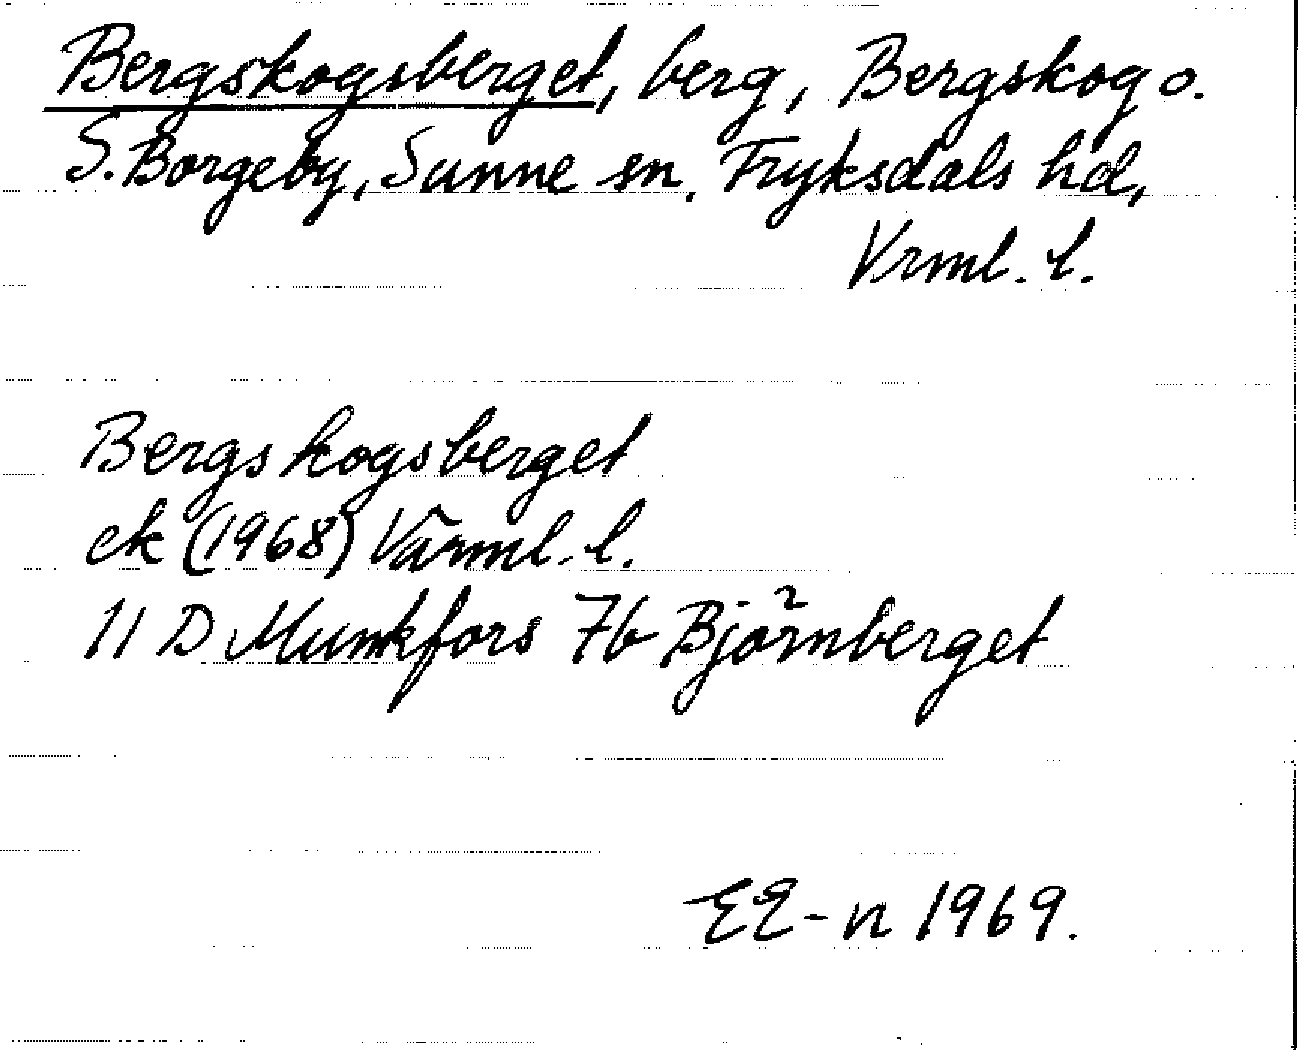 Bergskogsberget, berg, Bergskog o.
S. Borgeby, Sunne sn. Fryksdals hd,
Vrml. l.
Bergskogsberget
ek (1968) Värml. l.
11 D Munkfors 7b Björnberget
EE-n 1969.